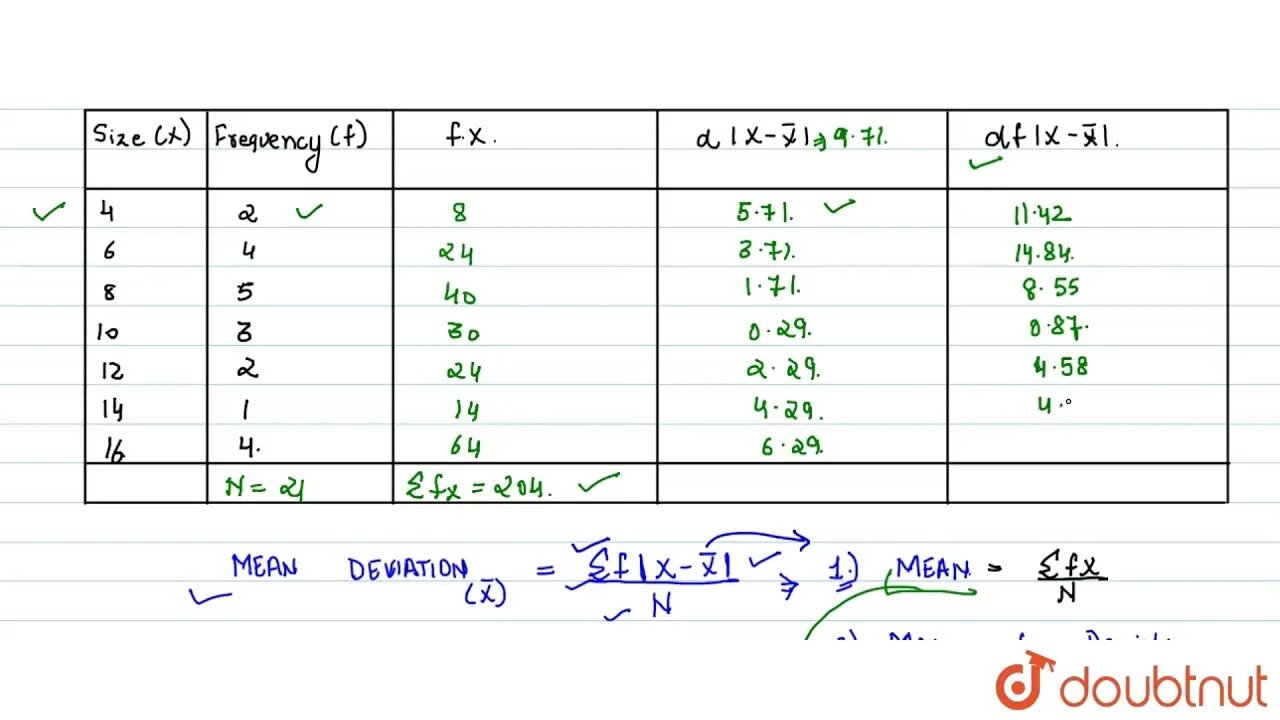 Size (X) Frequency (f) f.X. d |X-X̄| ⇒ 9.71. df|X-X̄|.
4 2 8 5.71. 11.42
6 4 24 3.71. 14.84.
8 5 40 1.71. 8.55
10 3 30 0.29. 0.87.
12 2 24 2.29. 4.58
14 1 14 4.29. 4.
16 4. 64 6.29.
N = 21 Σfx = 204.
MEAN DEVIATION (X̄) = Σf|X-X̄| / N ⇒ 1.) MEAN = Σfx / N
doubtnut